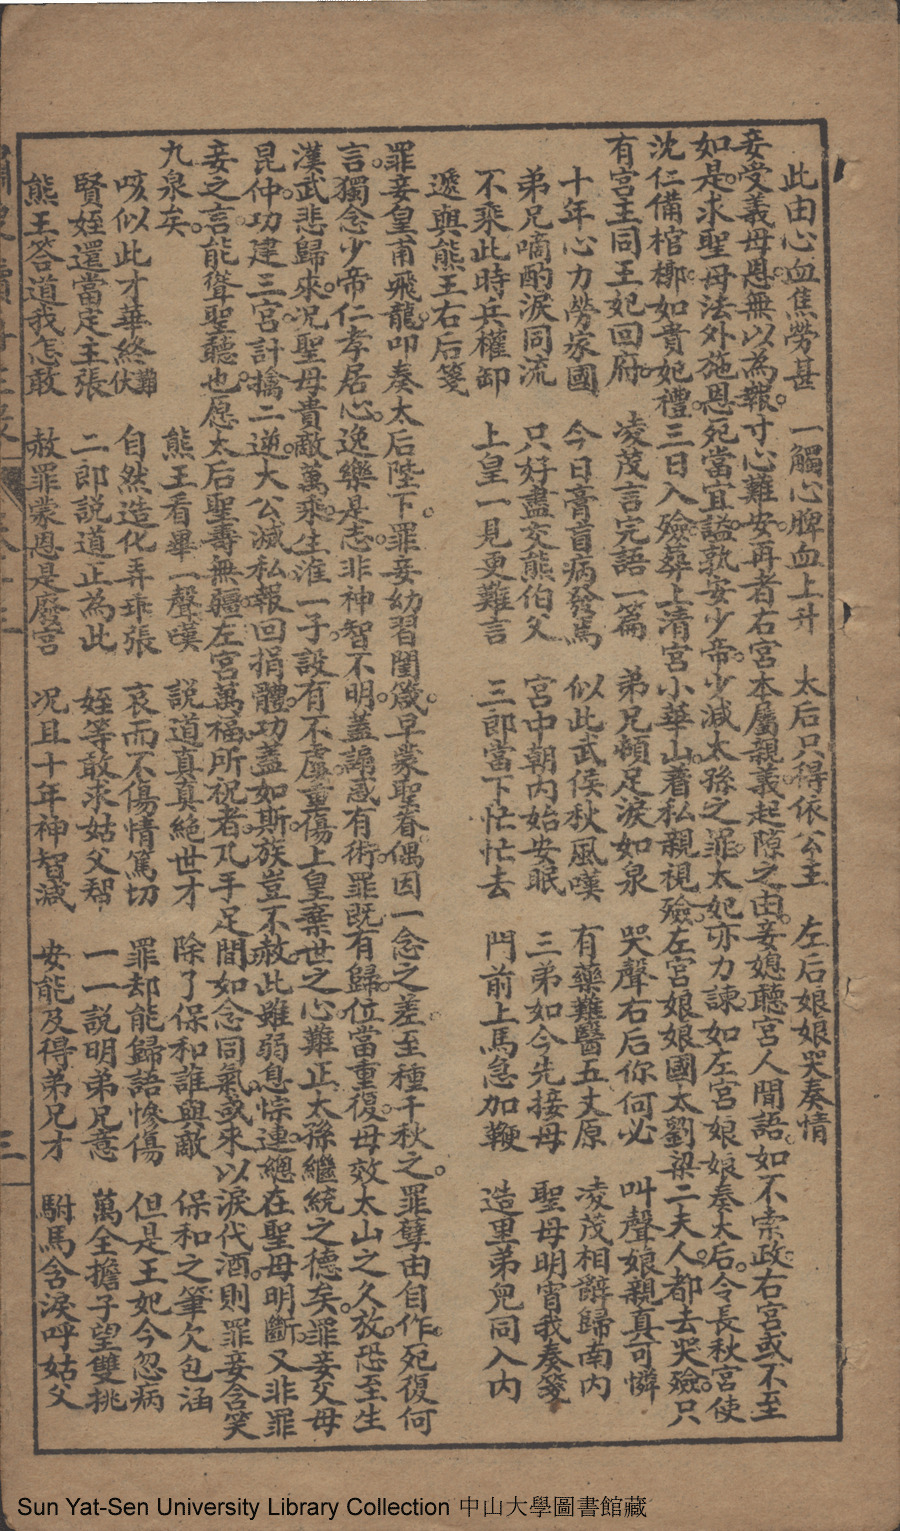 此由心血焦勞甚　一觸心脾血上升　太后只得依公主　左后娘娘哭奏情
妾受義母恩無以為報寸心難安再者右宮本屬親義起隙之由妾媳聽宮人間語如不索政右宮或不至
如是求聖母法外施恩死當宜謚孰安少帝少減太孫之罪太妃亦力諫如左宮娘娘奏太后令長秋宮使
沈仁備棺槨如貴妃禮三日入殮葬上清宮小華山着私親視殮左宮娘娘國太劉梁二夫人都去哭殮只
有宮主同王妃回府　凌茂言完語一篇　弟兄頓足淚如泉　哭聲右后你何必　叫聲娘親真可憐
十年心力勞家國　今日膏肓病發焉　似此武侯秋風嘆　有藥難醫五丈原　凌茂相辭歸南內
弟兄啇酌淚同流　只好盡交熊伯父　宮中朝內始安眠　三弟如今先接母　聖母明宵我奏箋
不乘此時兵權卸　上皇一見更難言　三郎當下忙忙去　門前上馬急加鞭　造里弟兄同入內
遞與熊王右后箋
罪妾皇甫飛龍叩奏太后陛下罪妾幼習閨箴早蒙聖眷偶因一念之差至種千秋之罪孽由自作死復何
言獨念少帝仁孝居心逸樂是志非神智不明蓋讒惑有術罪既有歸位當重復母效太山之久放恐至生
漢武悲歸來况聖母貴敵萬乘生淮一子設有不虞重傷上皇棄世之心難止太孫繼統之德矣罪妾父母
昆仲功建三宮計擒二逆大公滅私報回捐體功蓋如斯族豈不赦此雖弱息悰連總在聖母明斷又非罪
妾之言能聳聖聽也愿太后聖壽無疆左宮萬福所祝者兄手足間如念同氣或來以淚代酒則罪妾含笑
九泉矣　熊王看畢一聲嘆　說道真真絕世才　除了保和誰與敵　保和之筆欠包涵
咳似此才華終難伏　自然造化弄乖張　哀而不傷情篤切　罪却能歸語慘傷　但是王妃今忽病
賢姪還當定主張　二郎說道正為此　姪等敢求姑父智　一一說明弟兄意　萬全擔子望雙挑
熊王答道我怎敢　赦罪蒙恩是廢言　况且十年神智減　安能及得弟兄才　駙馬含淚呼姑父
三
Sun Yat-Sen University Library Collection 中山大學圖書館藏